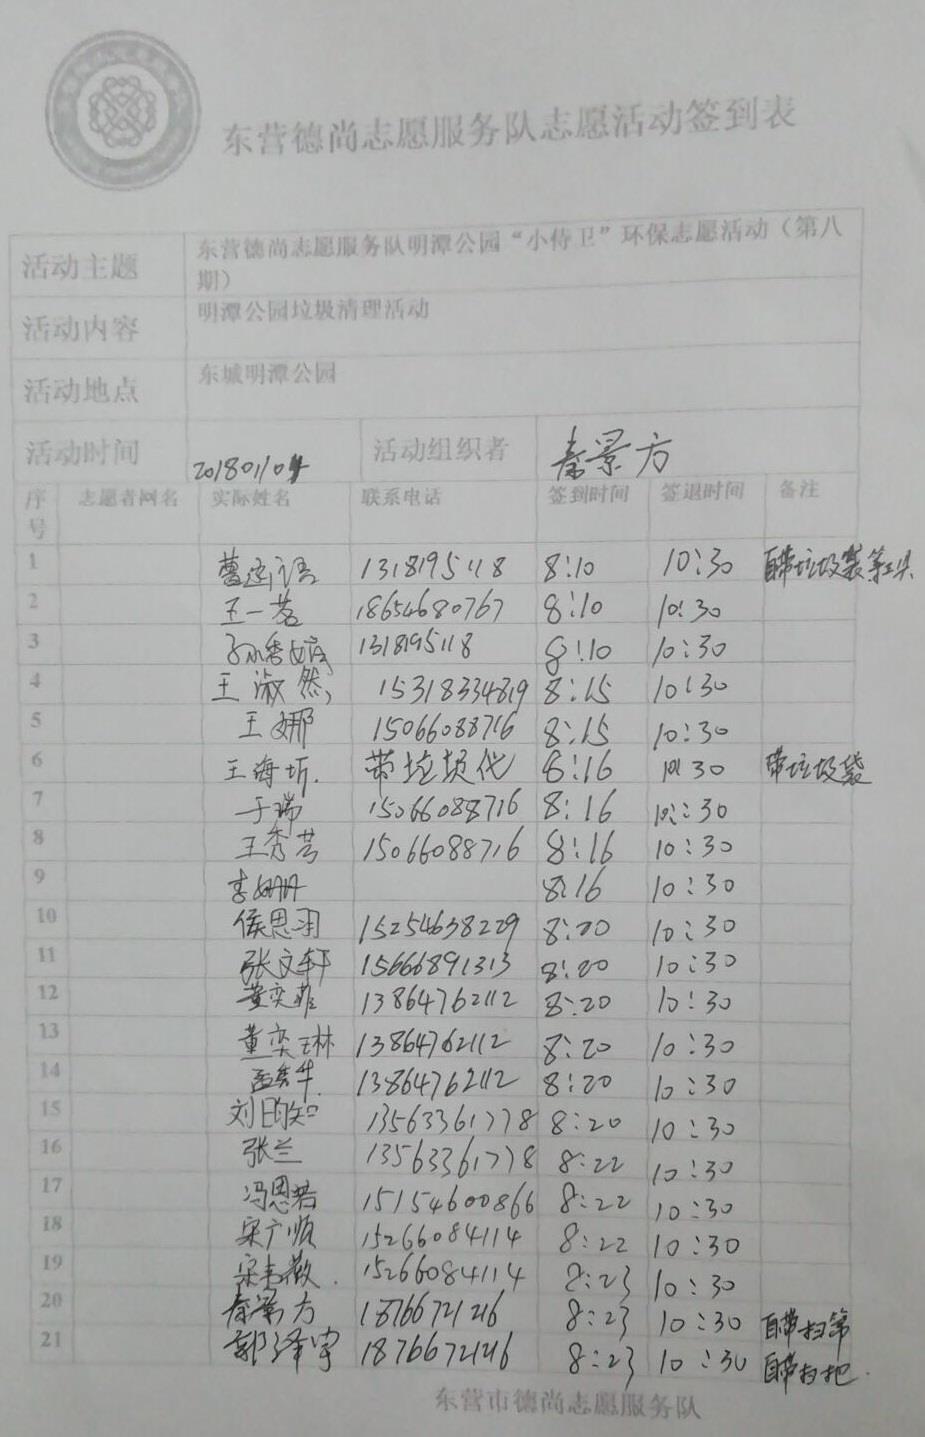 东营德尚志愿服务队志愿活动签到表
活动主题 东营德尚志愿服务队明潭公园“小侍卫”环保志愿活动（第八
期）
活动内容 明潭公园垃圾清理活动
活动地点 东城明潭公园
活动时间 20180104 活动组织者 秦景方
序号 志愿者网名 实际姓名 联系电话 签到时间 签退时间 备注
1 1318195118 8:10 10:30 自带垃圾袋等工具
2 王一茗 18654680767 8:10 10:30
3 1318195118 8:10 10:30
4 王淑然 15318334819 8:15 10:30
5 王娜 15066088716 8:15 10:30
6 王海圻 带垃圾袋 8:16 10:30 带垃圾袋
7 于瑞 15066088716 8:16 10:30
8 王秀芸 15066088716 8:16 10:30
9 李姗姗 8:16 10:30
10 侯思羽 15254638229 8:20 10:30
11 张文轩 15666891313 8:20 10:30
12 董奕菲 13864762112 8:20 10:30
13 董奕琳 13864762112 8:20 10:30
14 13864762112 8:20 10:30
15 刘昀知 13563361778 8:20 10:30
16 张兰 13563361778 8:22 10:30
17 冯恩若 15154600866 8:22 10:30
18 宋广顺 15266084114 8:22 10:30
19 15266084114 8:23 10:30
20 秦景方 18766721216 8:23 10:30 自带扫帚
21 郭泽宇 18766721216 8:23 10:30 自带扫把.
东营市德尚志愿服务队